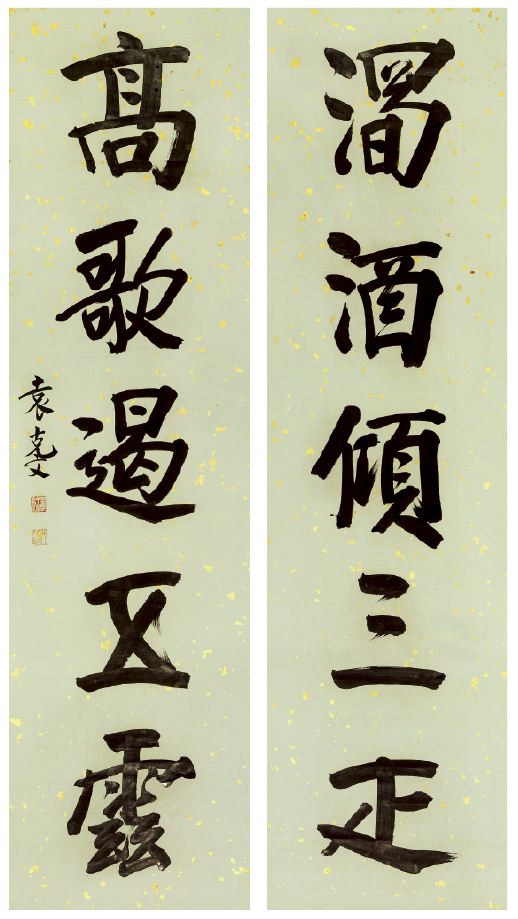 酒傾三疋
髙歌遏五雲
袁克文